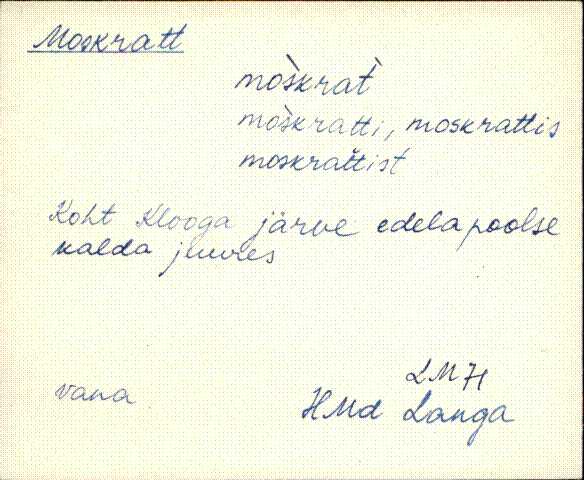 Moskratt
mòskrat̀
mòskratti, moskrattis
moskrattist
Koht Klooga järve edelapoolse
kalda juures
vana
LM 71
HMd Langa